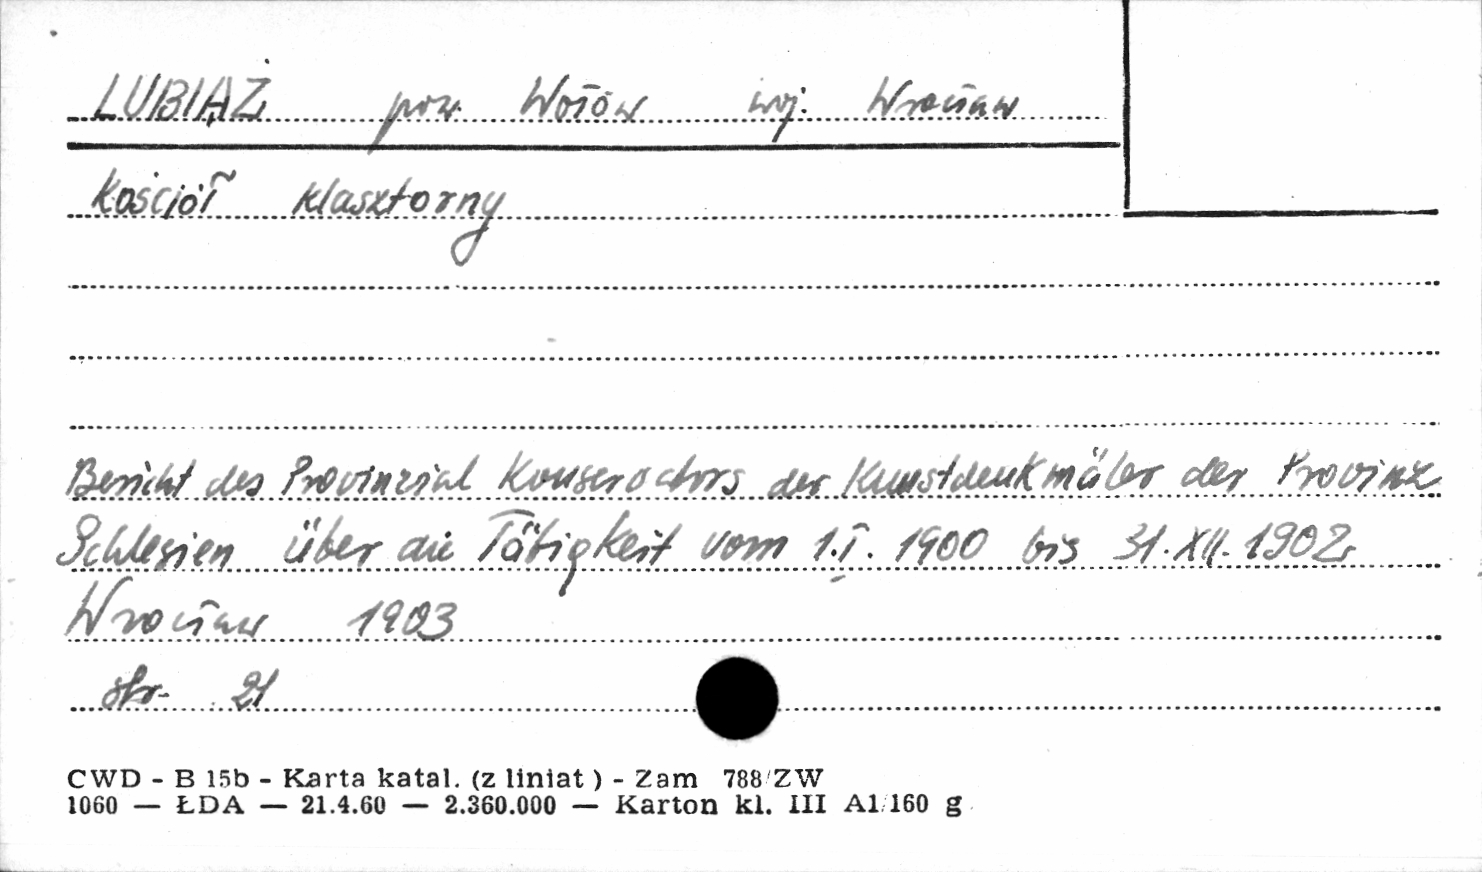 LUBIĄŻ pow. Wołów woj. Wrocław
Kościół klasztorny
Bericht des Provinzial Konservators der Kunstdenkmäler der Provinz
Schlesien über die Tätigkeit vom 1.I. 1900 bis 31.XII.1902
Wrocław 1903
str. 21
CWD - B 15b - Karta katal. (z liniat) - Zam 788/ZW
1060 — ŁDA — 21.4.60 — 2.360.000 — Karton kl. III A1/160 g